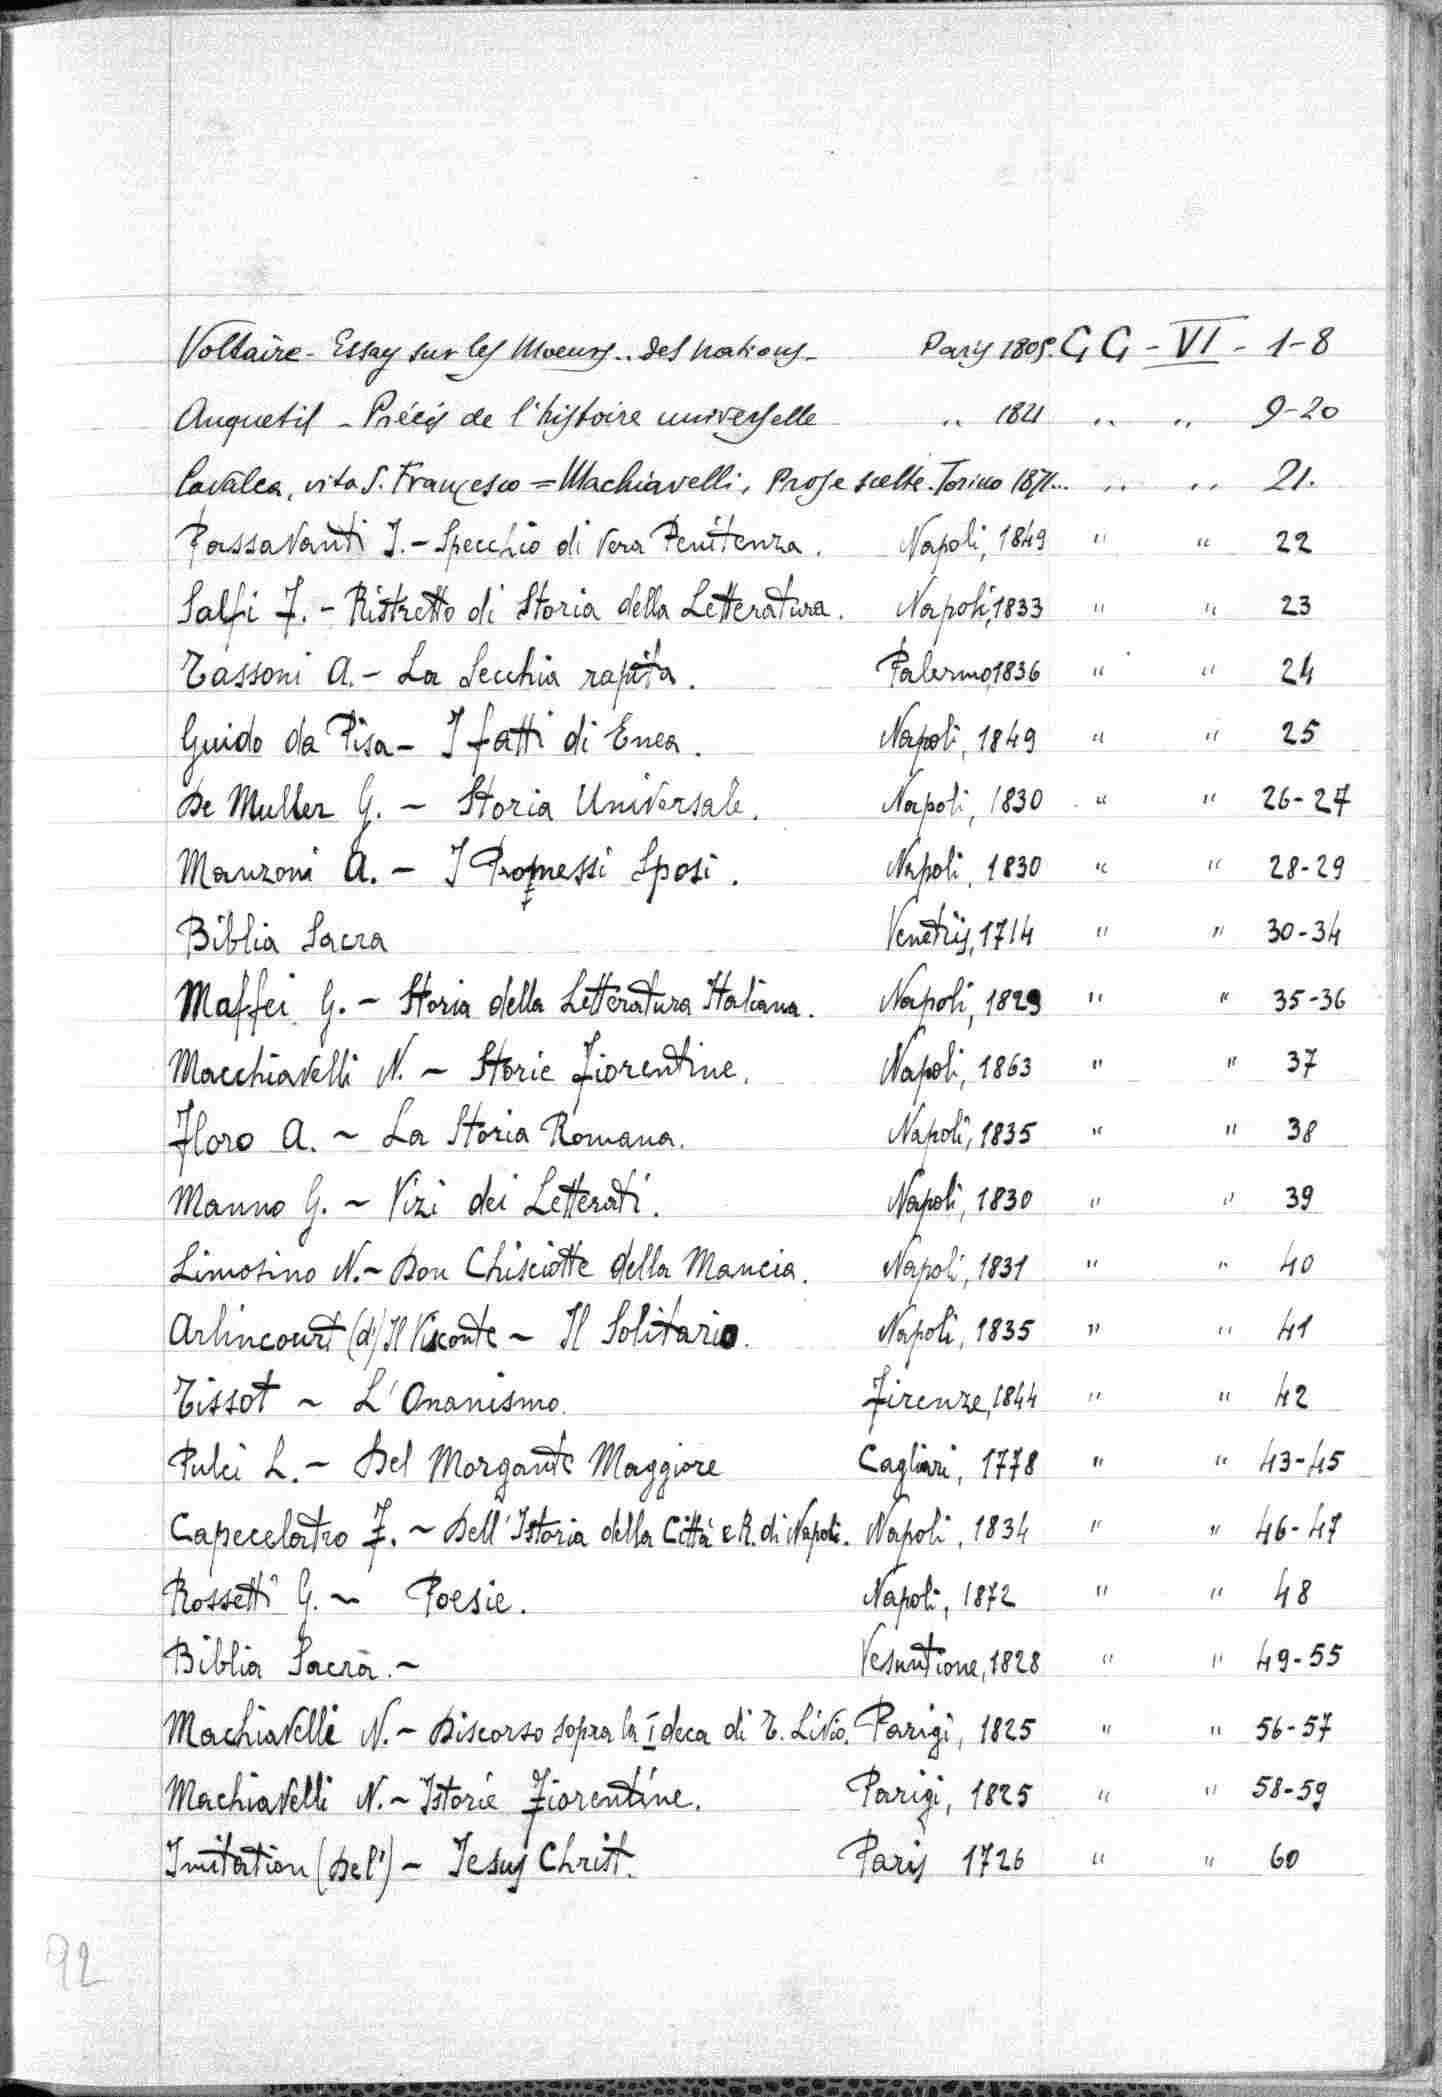 Voltaire - Essay sur les Moeurs .. des nations - Paris 1805. GG - VI - 1-8
Anquetil - Précis de l'histoire universelle " 1821 " " 9-20
Cavalca, vita S. Francesco = Machiavelli, Prose scelte. Torino 1871... " " 21.
Passavanti J. - Specchio di vera Penitenza. Napoli, 1849 " " 22
Salfi F. - Ristretto di Storia della Letteratura. Napoli, 1833 " " 23
Tassoni A. - La Secchia rapita. Palermo, 1836 " " 24
Guido da Pisa - I fatti di Enea. Napoli, 1849 " " 25
De Muller G. - Storia Universale. Napoli, 1830 " " 26-27
Manzoni A. - I Promessi Sposi. Napoli, 1830 " " 28-29
Biblia Sacra Venetiis, 1714 " " 30-34
Maffei G. - Storia della Letteratura Italiana. Napoli, 1829 " " 35-36
Macchiavelli N. - Storie Fiorentine. Napoli, 1863 " " 37
Floro A. - La Storia Romana. Napoli, 1835 " " 38
Manno G. - Vizi dei Letterati. Napoli, 1830 " " 39
Limosino N. - Don Chisciotte della Mancia. Napoli, 1831 " " 40
Arlincourt (d') Il Visconte - Il Solitario. Napoli, 1835 " " 41
Tissot - L'Onanismo. Firenze, 1844 " " 42
Pulci L. - Del Morgante Maggiore Cagliari, 1778 " " 43-45
Capecelatro F. - Dell'Istoria della Città e R. di Napoli. Napoli, 1834 " " 46-47
Rossetti G. - Poesie. Napoli, 1872 " " 48
Biblia Sacra. - Vesuntione, 1828 " " 49-55
Machiavelli N. - Discorso sopra la I deca di T. Livio. Parigi, 1825 " " 56-57
Machiavelli N. - Istorie Fiorentine. Parigi, 1825 " " 58-59
Imitation (Del') - Jesus Christ. Paris 1726 " " 60
92